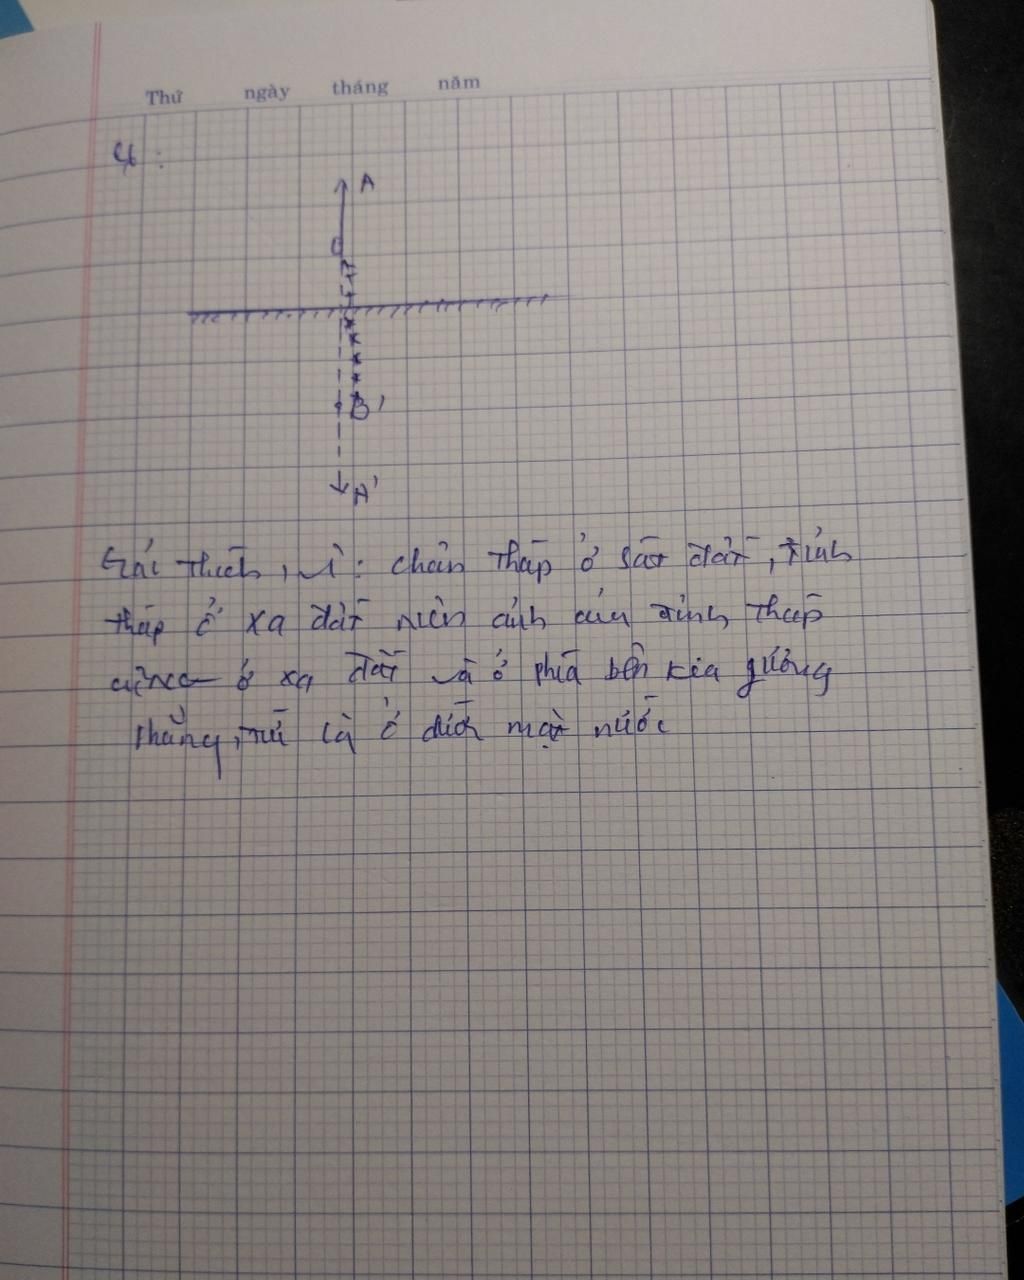 Thứ ngày tháng năm
4 :
A
B'
A'
Giải thích, vì: chân tháp ở sát đất, đỉnh
tháp ở xa đất nên ảnh của đỉnh tháp
cũng ở xa đất và ở phía bên kia gương
phẳng, tức là ở dưới mặt nước